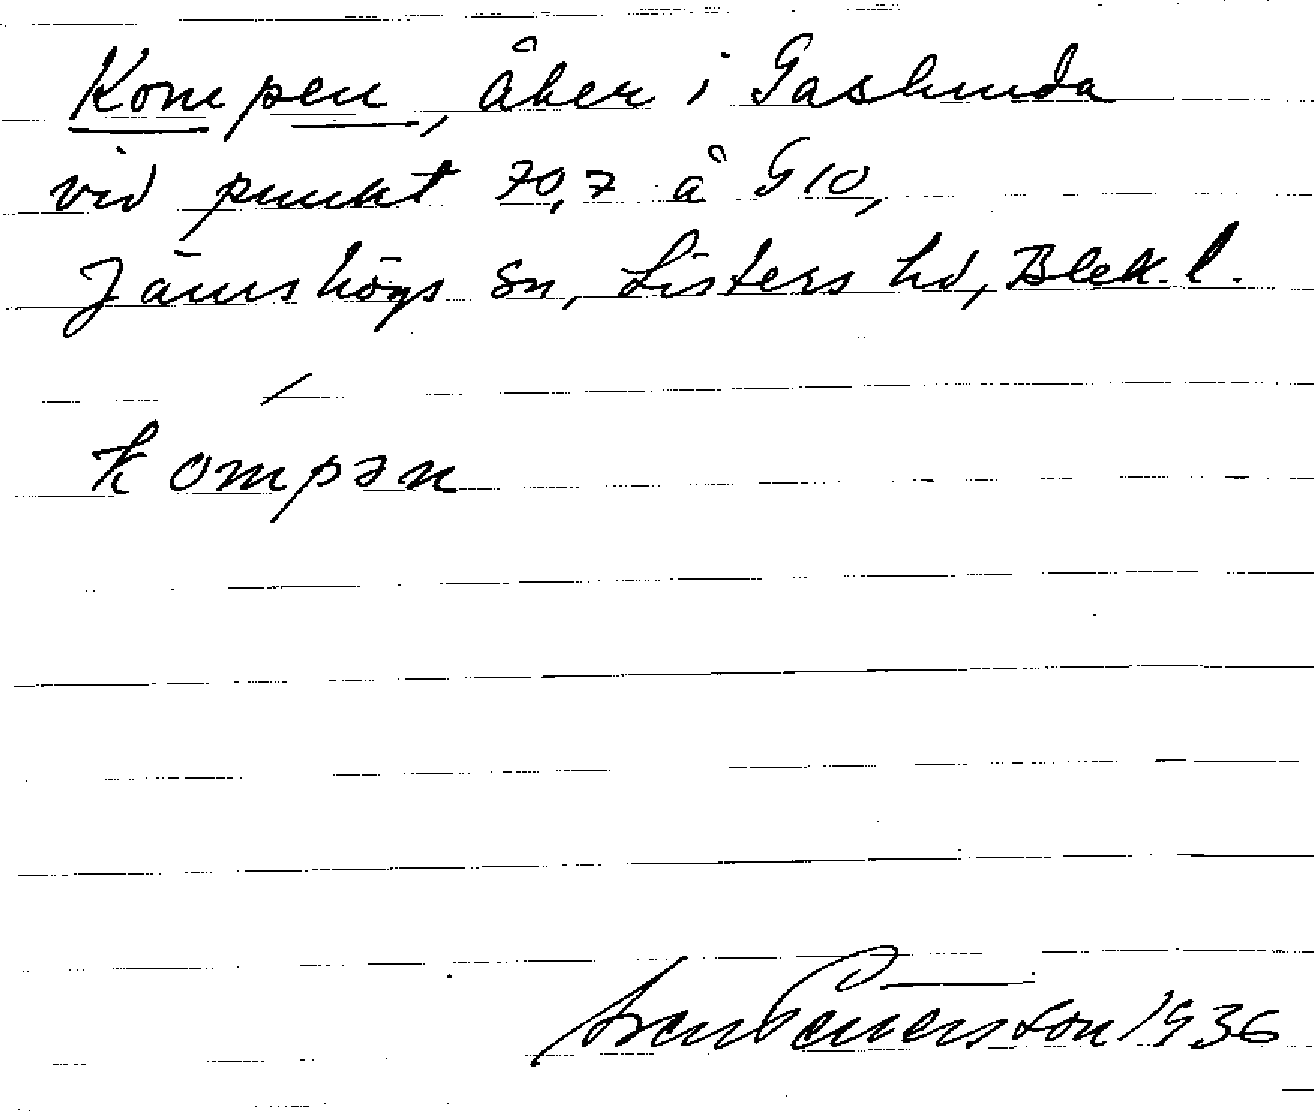 Kompen, åker i Gaslunda
vid punkt 70,7 å G 10,
Jämshögs sn, Listers hd, Blek. l.
kómpən
Sven 1936